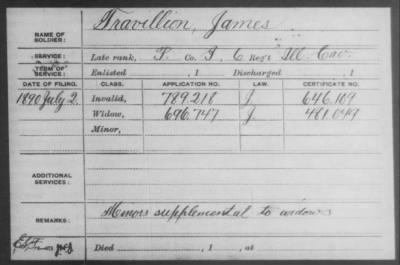 NAME OF SOLDIER: Travillion, James
SERVICE: Late rank, Co. I, 6 Reg't Ill. Cav.
TERM OF SERVICE: Enlisted , 1 Discharged , 1
DATE OF FILING. CLASS. APPLICATION NO. LAW. CERTIFICATE NO.
1890 July 2. Invalid, 789.218 J. 646.109
Widow, 696.747 J. 481.049
Minor,
ADDITIONAL SERVICES:
REMARKS: Minors supplemental to widows
Died , 1 , at